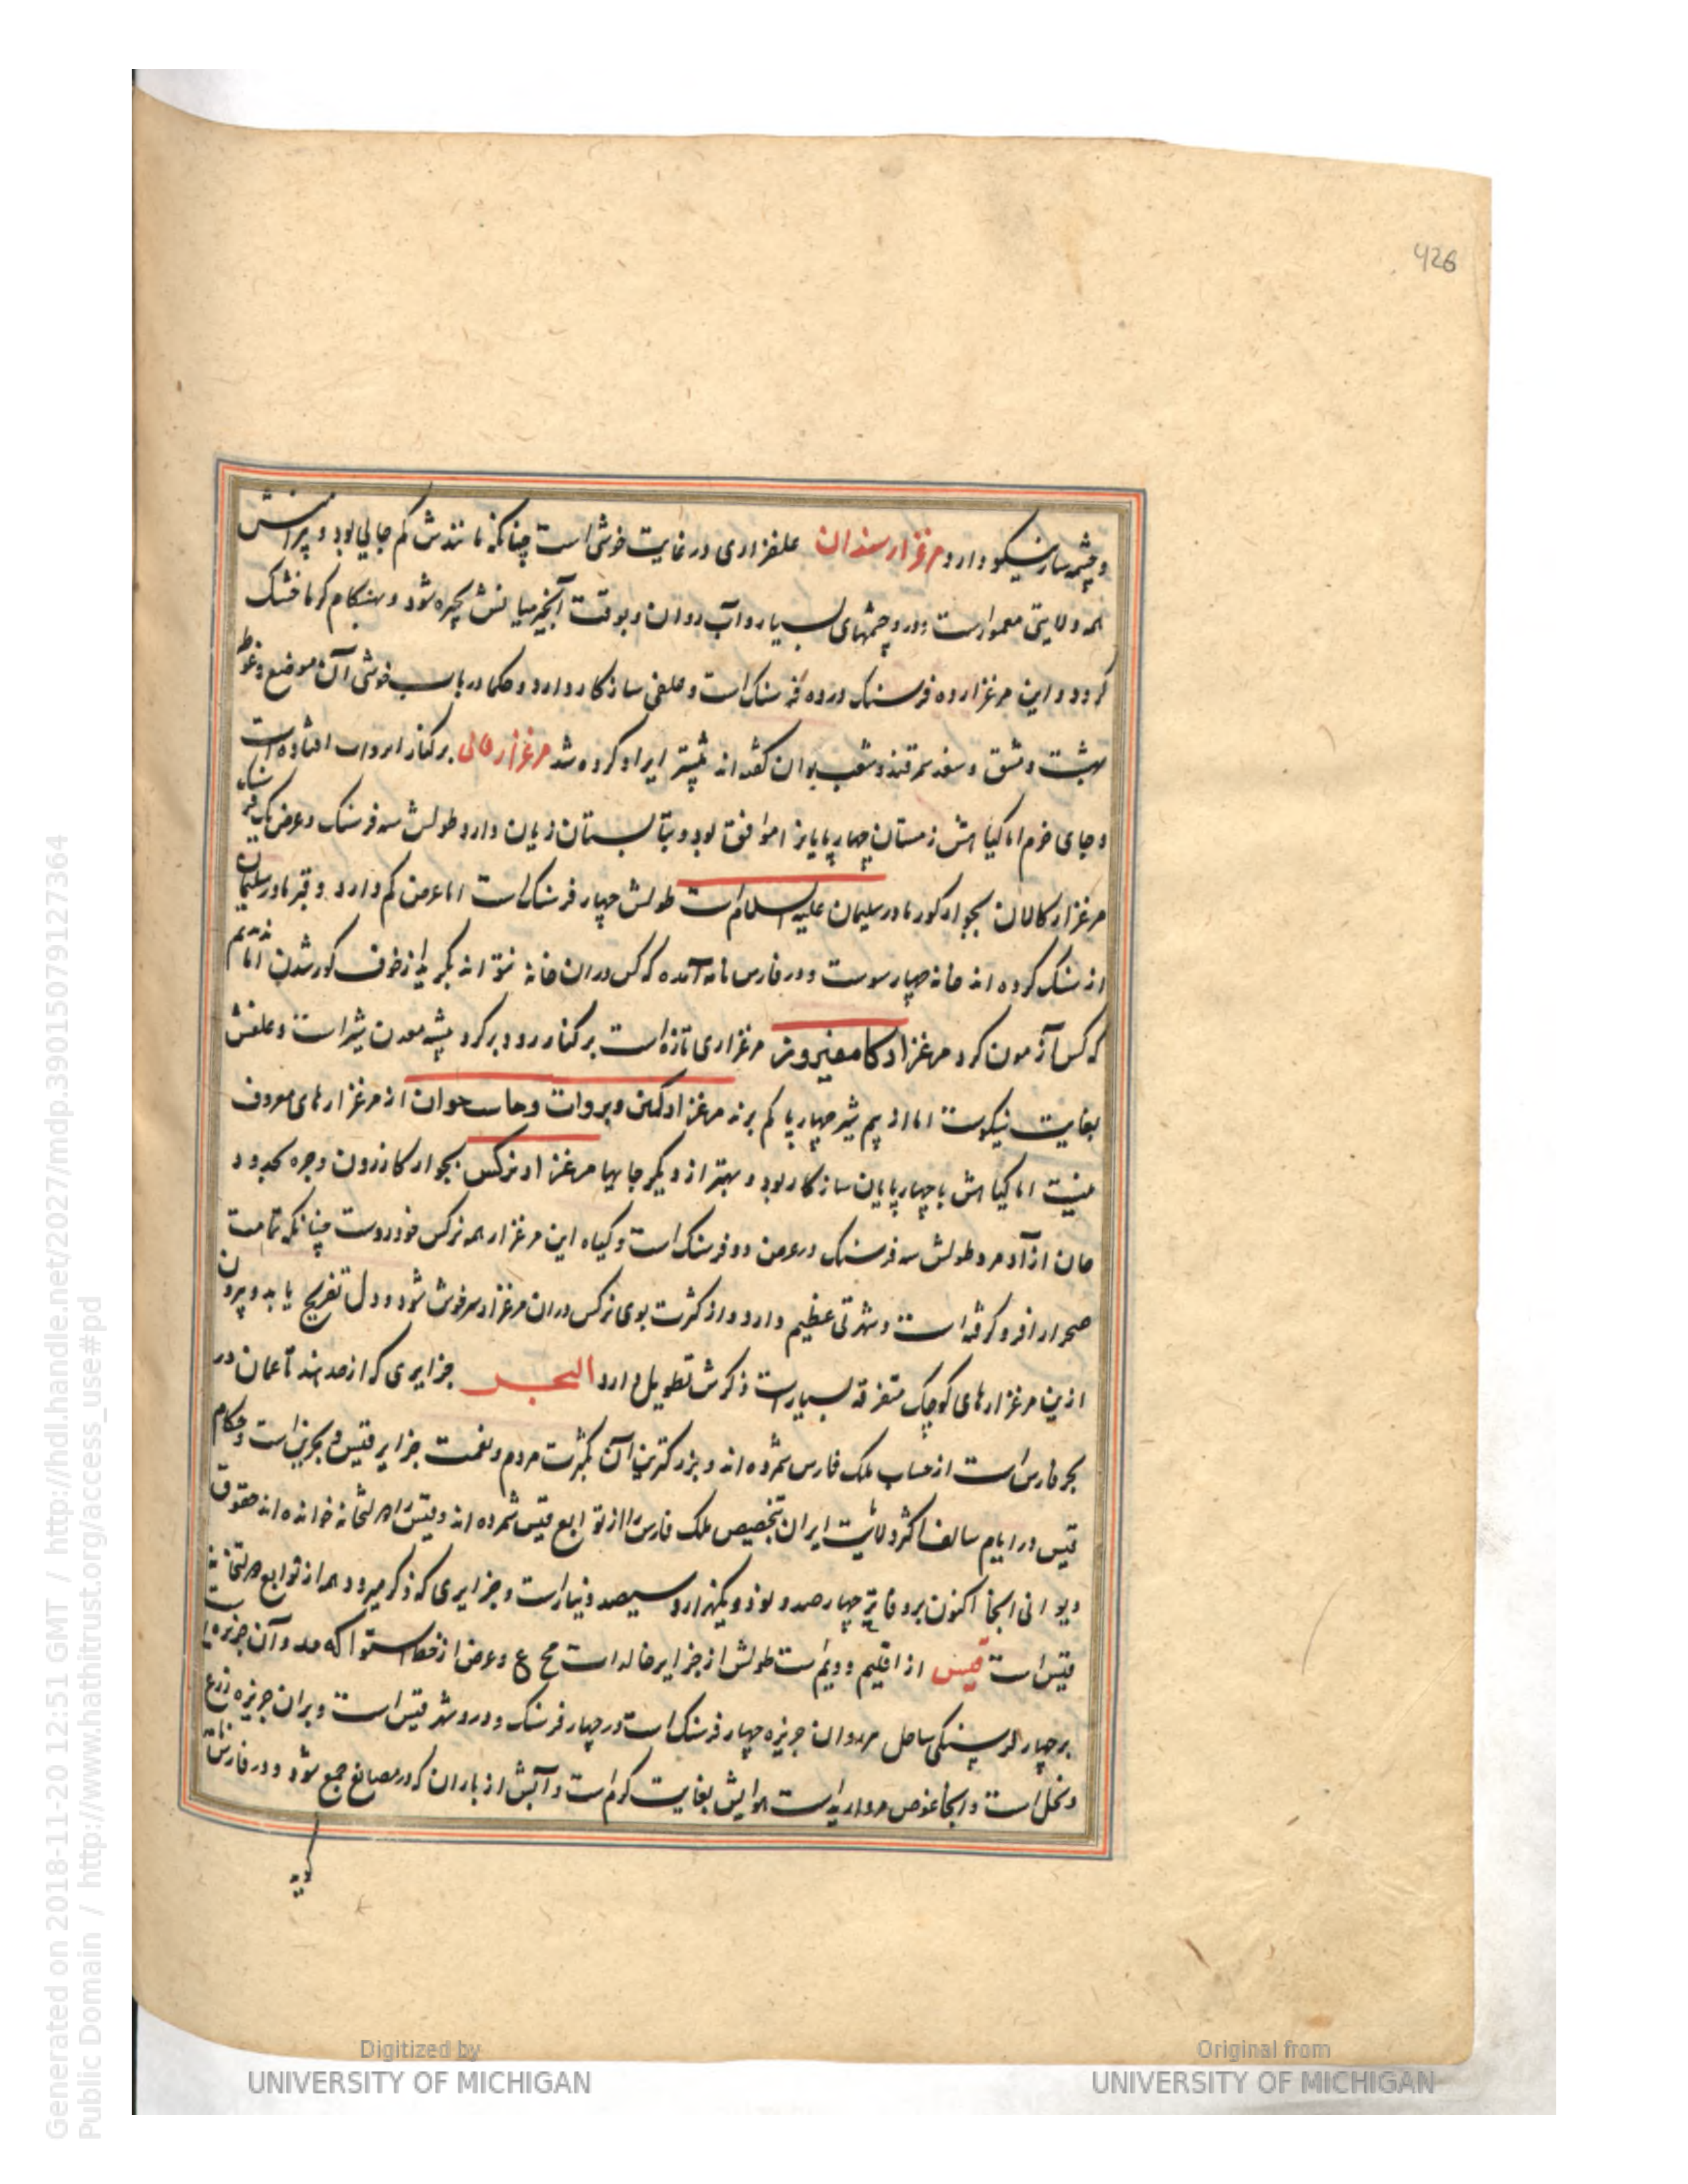 426
و چشمه سار نیکو دارد مرغزار سندان علفزاری در غایت خوشی است چنانکه مانندش کم جایی بود و پیرامنش
همه ولایتی معمورست و درو چشمهای بسیار و آب روان و بوقت آبخیز میانش بحیره شود و بهنکام کرما خشک
کردد و این مرغزار ده فرسنک در ده فرسنک است و علفی سازکار دارد و حکما در باب خوشی آن موضع و غوطه
بهشت دمشق و سغد سمرقند و شعب بوان کفته اند پیشتر ایراد کرده شد مرغزار قالی بر کنار آب افتاده است
و جای خرم اما کیاهش زمستان چهارپایانرا موافق بود و بتابستان زیان دارد طولش سه فرسنک و عرض یک فرسنک
مرغزار کالان بجوار کور مادر سلیمان علیه السلام است طولش چهار فرسنک است اما عرض کم دارد و قبر مادر سلیمان
از سنک کرده اند خانه چهارسوست و در فارس نامه آمده که کس در ان خانه نتواند نکرید از خوف کور شدن اما ندیدیم
که کس آزمون کرد مرغزار کامفیروز مرغزاری تازه است بر کنار رود بر کرد بیشه معدن شیر است و علفش
بغایت نیکوست اما از بیم شیر چهارپا کم برند مرغزار کمین و بروات و خاست حوان از مرغزارهای معروف
نیست اما کیاهش با چهارپایان سازکار بود و بهتر از دیکر جایها مرغزار نرکس بجوار کازرون و جره بحدود
خان ازآد مرد طولش سه فرسنک در عرض دو فرسنک است و کیاه این مرغزار همه نرکس خودروست چنانکه تمامت
صحرا را فرو کرفته است و شهرتی عظیم دارد و از کثرت بوی نرکس در ان مرغزار سر خوش شود و دل تفریح یابد و بیرون
ازین مرغزارهای کوچک متفرقه بسیارست ذکرش تطویل دارد البحر جزایری که از حد هند تا عمان در
بحر فارس است از حساب ملک فارس شمرده اند و بزرکترین آن بکثرت مردم و نعمت جزایر قیس و بحرین است و حکام
قیس در ایام سالف اکثر ولایت ایران بتخصیص ملک فارس را از توابع قیس شمرده اند و قیس را دولتخانه خوانده اند حقوق
دیوانی آنجا اکنون بر دفاتر چهارصد و نود و یکهزار و سیصد دینار است و جزایری که ذکر میرود همه از توابع دولتخانه
قیس است قیس از اقلیم دویم است طولش از جزایر خالدات مح ع و عرض از خط استوا که مه و آن جزیره ایست
بر چهار فرسنکی ساحل هرو و ان جزیره چهار فرسنک است در چهار فرسنک و درو شهر قیس است و بران جزیره زرع
و نخل است و آنجا غوص مروارید است هوایش بغایت کرم است و آبش از باران که در مصانع جمع شود و در فارس نامه
کوید
Digitized by
UNIVERSITY OF MICHIGAN
Original from
UNIVERSITY OF MICHIGAN
Generated on 2018-11-20 12:51 GMT / http://hdl.handle.net/2027/mdp.39015079127364
Public Domain / http://www.hathitrust.org/access_use#pd